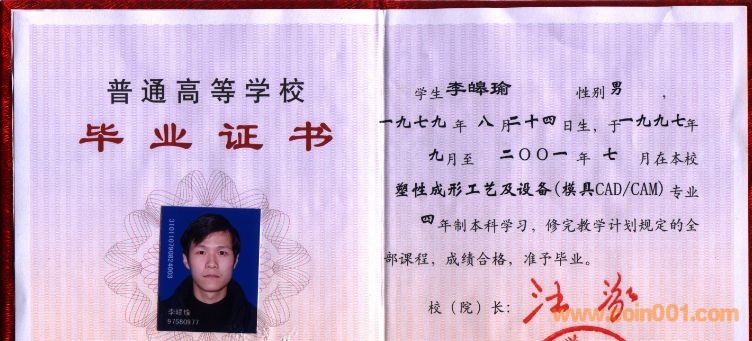 普通高等学校
毕业证书
310110790824003
李皞瑜
97580977
学生李皞瑜 性别男，
一九七九年八月二十四日生，于一九九七年
九月至二〇〇一年七月在本校
塑性成形工艺及设备(模具CAD/CAM)专业
四年制本科学习，修完教学计划规定的全
部课程，成绩合格，准予毕业。
校（院）长：
www.coin001.com